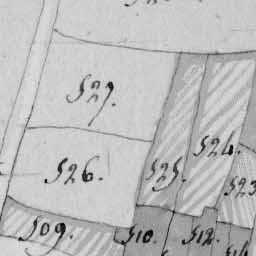 527.
524.
526.
525.
523
509.
510.
512.